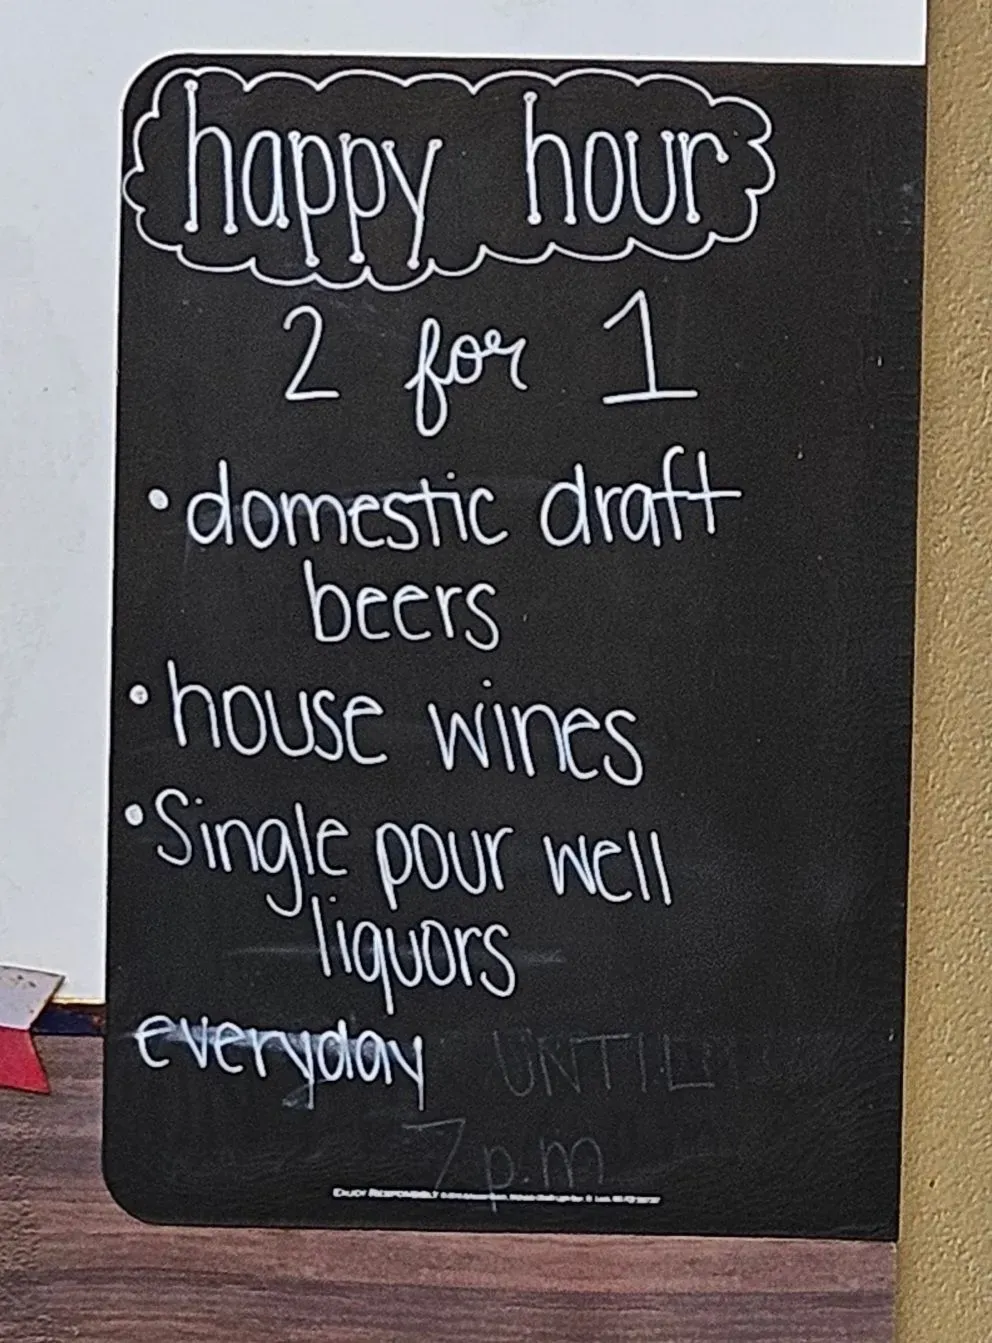 happy hour
2 for 1
• domestic draft
beers
• house wines
• Single pour well
liquors
everyday UNTIL
7 p.m
ENJOY RESPONSIBLY